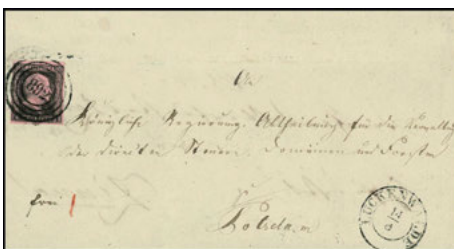 An
Königliche Regierung. Abtheilung für die Verwaltung
der directen Steuern, Domainen und Forsten
zu
Potsdam
frei
LUCKENWALDE